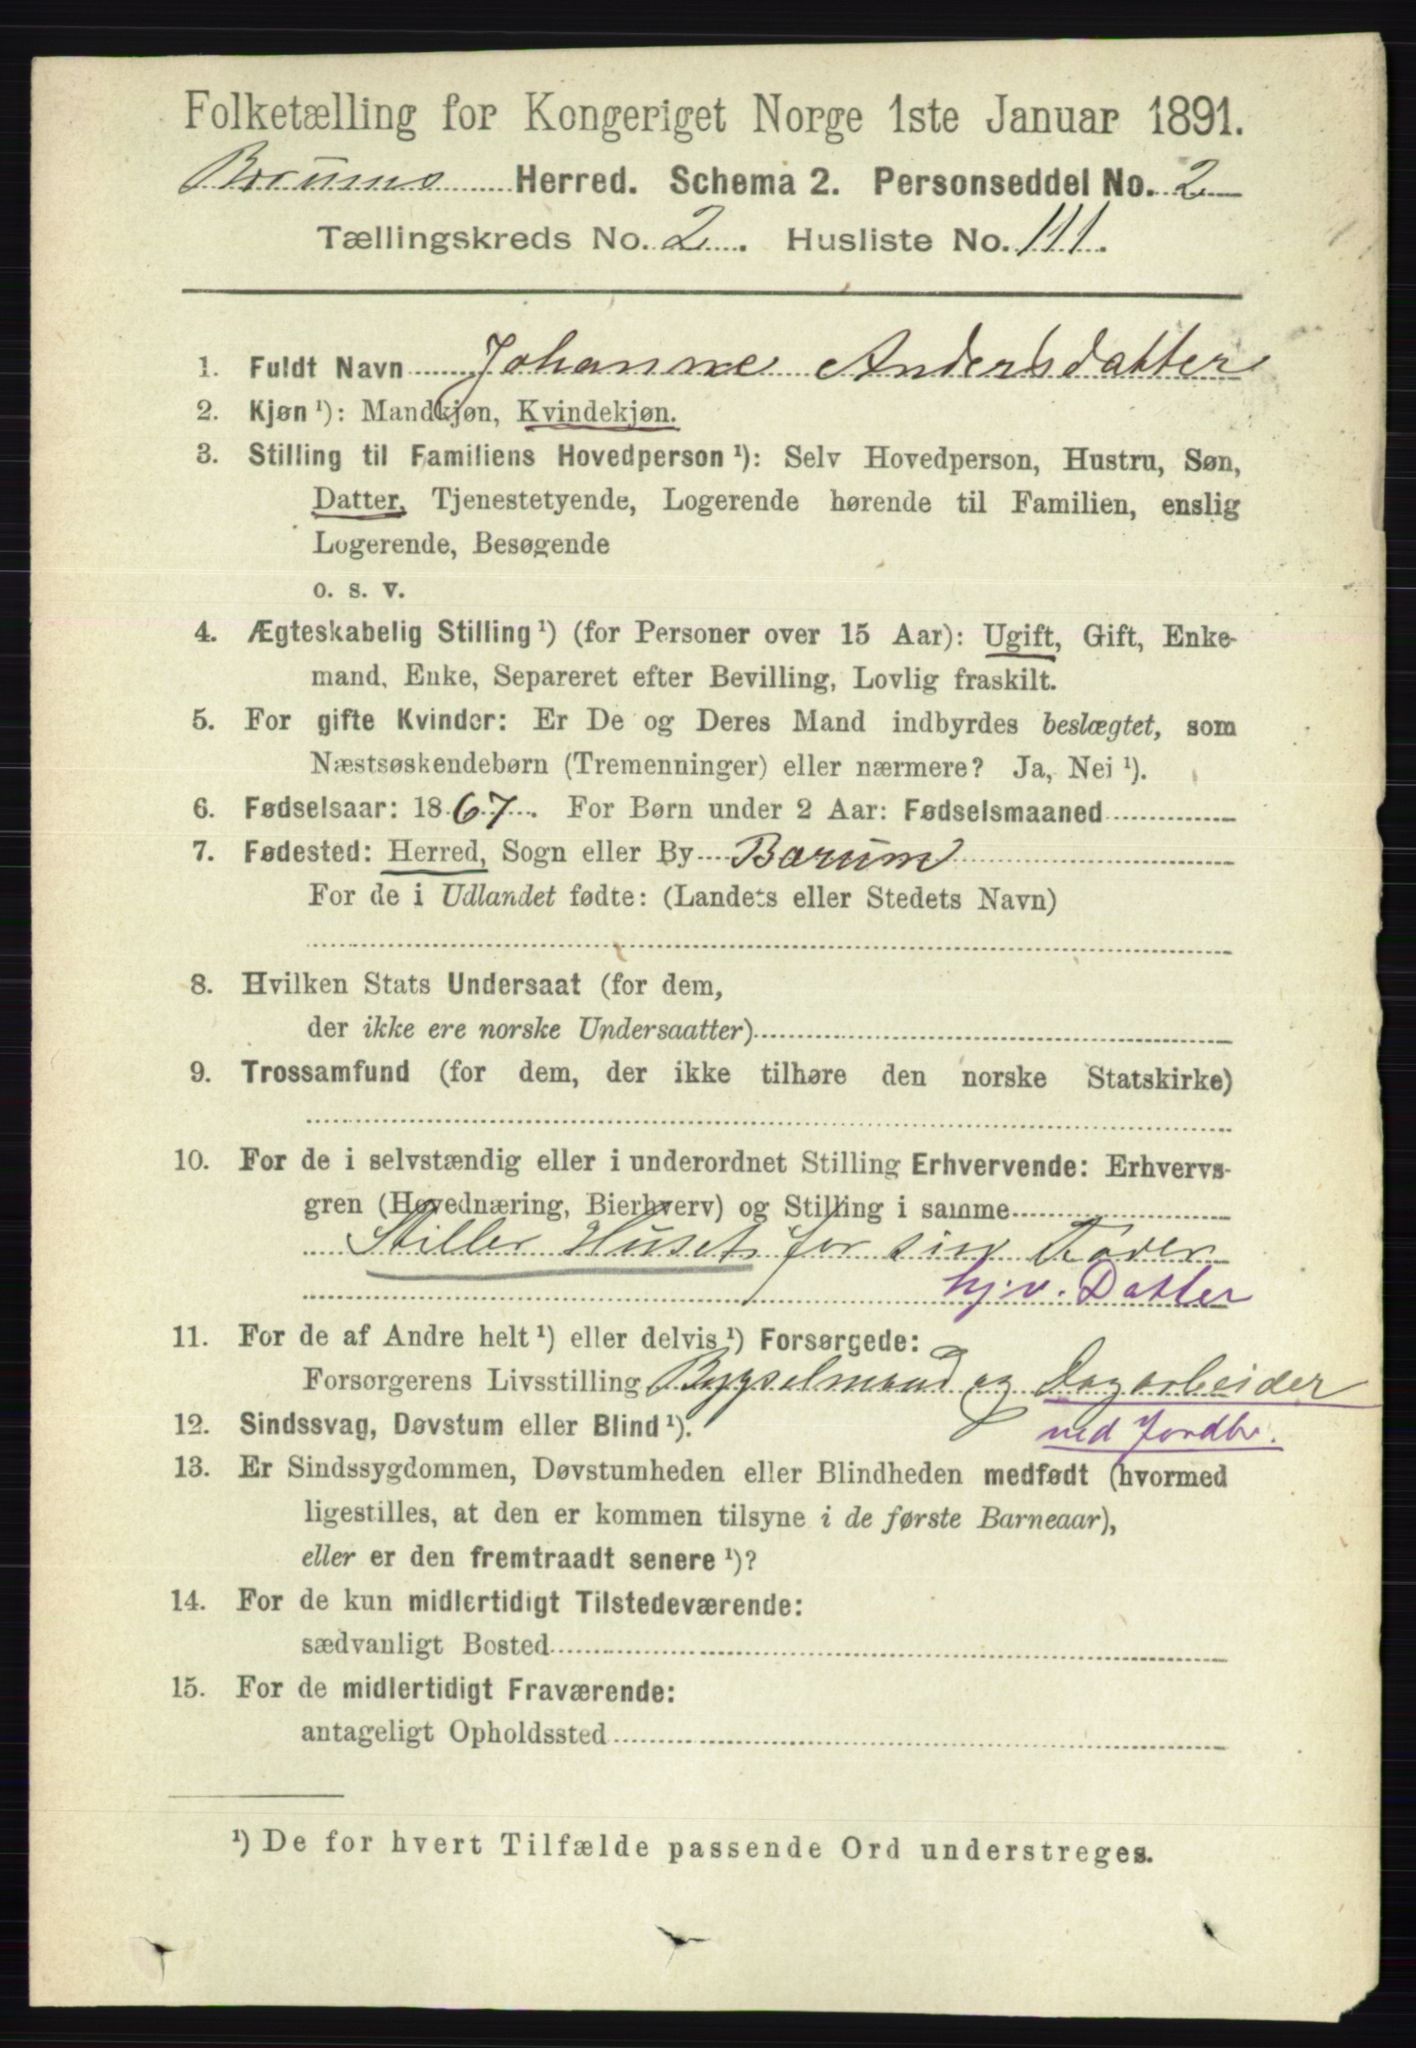 Folketælling for Kongeriget Norge 1ste Januar 1891.
Bærums Herred. Schema 2. Personseddel No. 2
Tællingskreds No. 2. Husliste No. 111.
1. Fuldt Navn Johanne Andersdatter
2. Kjøn ¹): Mandkjøn, Kvindekjøn.
3. Stilling til Familiens Hovedperson ¹): Selv Hovedperson, Hustru, Søn,
Datter, Tjenestetyende, Logerende hørende til Familien, enslig
Logerende, Besøgende
o. s. v.
4. Ægteskabelig Stilling ¹) (for Personer over 15 Aar): Ugift, Gift, Enke-
mand, Enke, Separeret efter Bevilling, Lovlig fraskilt.
5. For gifte Kvinder: Er De og Deres Mand indbyrdes beslægtet, som
Næstsøskendebørn (Tremenninger) eller nærmere? Ja, Nei ¹).
6. Fødselsaar: 1867. For Børn under 2 Aar: Fødselsmaaned
7. Fødested: Herred, Sogn eller By Bærum
For de i Udlandet fødte: (Landets eller Stedets Navn)
8. Hvilken Stats Undersaat (for dem,
der ikke ere norske Undersaatter)
9. Trossamfund (for dem, der ikke tilhøre den norske Statskirke)
10. For de i selvstændig eller i underordnet Stilling Erhvervende: Erhvervs-
gren (Hovednæring, Bierhverv) og Stilling i samme
Stiller Huset for sin Fader
hj.v. Datter
11. For de af Andre helt ¹) eller delvis ¹) Forsørgede:
Forsørgerens Livsstilling Bygselmand og Dagarbeider
12. Sindssvag, Døvstum eller Blind ¹).
ved Jordbr.
13. Er Sindssygdommen, Døvstumheden eller Blindheden medfødt (hvormed
ligestilles, at den er kommen tilsyne i de første Barneaar),
eller er den fremtraadt senere ¹)?
14. For de kun midlertidigt Tilstedeværende:
sædvanligt Bosted
15. For de midlertidigt Fraværende:
antageligt Opholdssted
¹) De for hvert Tilfælde passende Ord understreges.